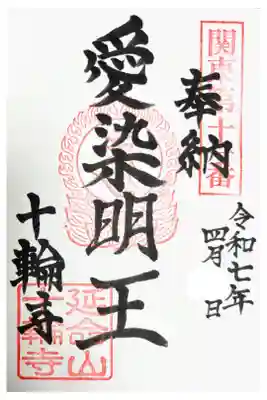 関東第十番
奉納
令和七年
四月 日
愛染明王
十輪寺
延命山
十輪寺